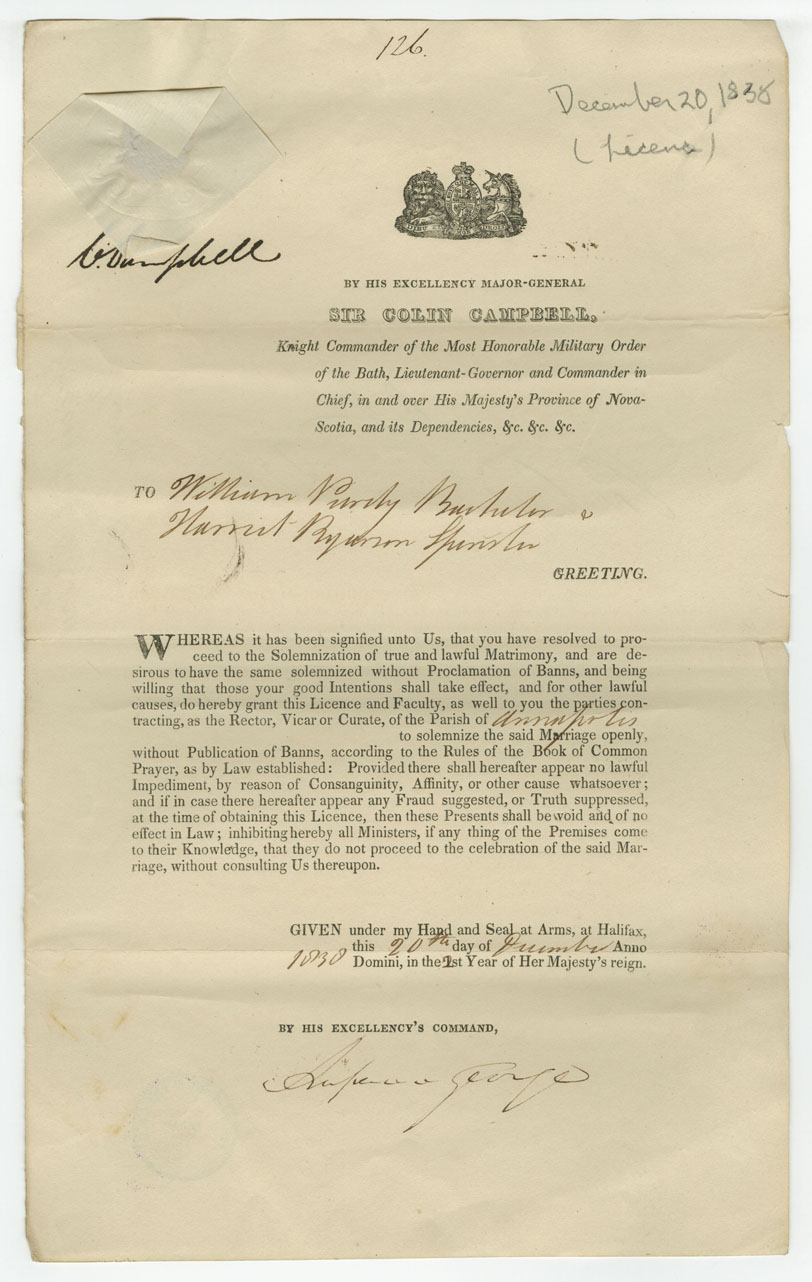 126.
December 20, 1838
(Licence)
C. Campbell
BY HIS EXCELLENCY MAJOR-GENERAL
SIR COLIN CAMPBELL,
Knight Commander of the Most Honorable Military Order
of the Bath, Lieutenant-Governor and Commander in
Chief, in and over His Majesty's Province of Nova-
Scotia, and its Dependencies, &c. &c. &c.
TO William Purdy Bachelor &
Harriet Ryerson Spinster
GREETING.
WHEREAS it has been signified unto Us, that you have resolved to pro-
ceed to the Solemnization of true and lawful Matrimony, and are de-
sirous to have the same solemnized without Proclamation of Banns, and being
willing that those your good Intentions shall take effect, and for other lawful
causes, do hereby grant this Licence and Faculty, as well to you the parties con-
tracting, as the Rector, Vicar or Curate, of the Parish of Annapolis
to solemnize the said Marriage openly,
without Publication of Banns, according to the Rules of the Book of Common
Prayer, as by Law established: Provided there shall hereafter appear no lawful
Impediment, by reason of Consanguinity, Affinity, or other cause whatsoever;
and if in case there hereafter appear any Fraud suggested, or Truth suppressed,
at the time of obtaining this Licence, then these Presents shall be void and of no
effect in Law; inhibiting hereby all Ministers, if any thing of the Premises come
to their Knowledge, that they do not proceed to the celebration of the said Mar-
riage, without consulting Us thereupon.
GIVEN under my Hand and Seal at Arms, at Halifax,
this 20th day of December Anno
1838 Domini, in the 2st Year of Her Majesty's reign.
BY HIS EXCELLENCY'S COMMAND,
George